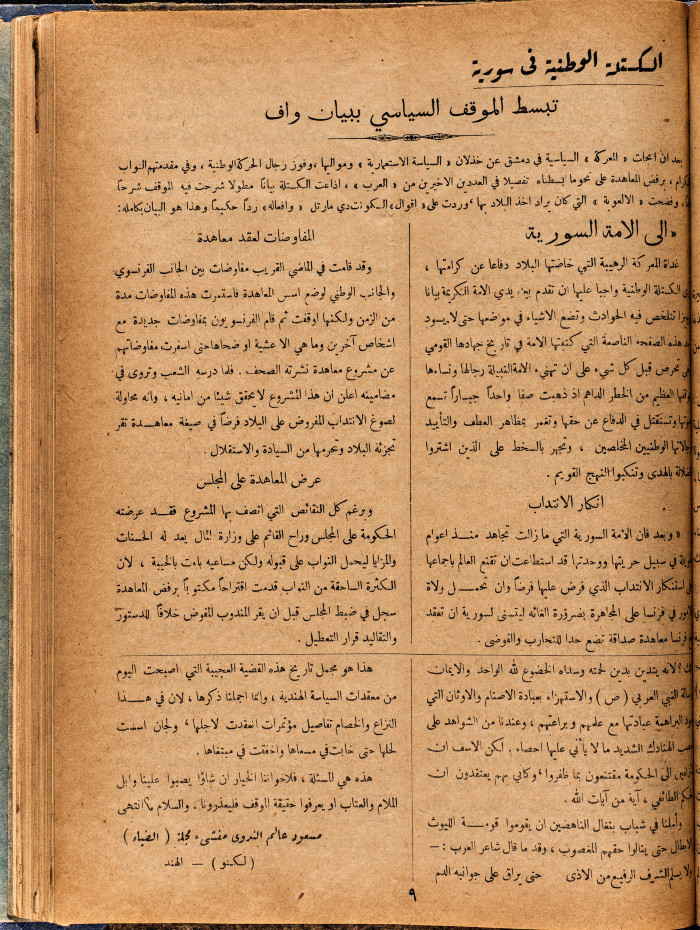 الكتلة الوطنية في سورية
تبسط الموقف السياسي ببيان واف
بعد ان انجلت « المعركة » السياسية في دمشق عن خذلان « السياسة الاستعمارية » ومواليها ، وفوز رجال الحركة الوطنية ، وفي مقدمتهم النواب
برفض المعاهدة على نحو ما بسطناه تفصيلا في العددين الاخيرين من « العرب » ، اذاعت الكتلة بيانًا مطولا شرحت فيه الموقف شرحًا
وفضحت « الالعوبة » التي كان يراد اخذ البلاد بها ، وردت على « اقوال » الكونت دي مارتل « وافعاله » ردًا حكيمًا وهذا هو البيان بكامله :
« الى الامة السورية
غداة المعركة الرهيبة التي خاضتها البلاد دفاعا عن كرامتها ،
الكتلة الوطنية واجبا عليها ان تقدم بين يدي الامة الكريمة بيانا
تتلخص فيه الحوادث وتضع الاشياء في موضعها حتى لا يسود
هذه الصفحه الناصعة التي كتبتها الامة في تاريخ جهادها القومي
تحرص قبل كل شيء على ان تهنيء الامة النبيلة رجالها ونساءها
العظيم من الخطر الداهم اذ ذهبت صفا واحداً جباراً تسمع
وتستقتل في الدفاع عن حقها وتغمر بمظاهر العطف والتأييد
الوطنيين المخلصين ، وتجهر بالسخط على الذين اشتروا
الضلالة بالهدى وتنكبوا النهج القويم .
انكار الانتداب
« وبعد فان الامة السورية التي ما زالت تجاهد منذ اعوام
في سبيل حريتها ووحدتها قد استطاعت ان تقنع العالم باجماعها
استنكار الانتداب الذي فرض عليها فرضاً وان تحمل ولاة
في فرنسا على المجاهرة بضرورة الغائه ليتسنى لسورية ان تعقد
فرنسا معاهدة صداقة تضع حدا للتجارب والفوضى .
المفاوضات لعقد معاهدة
وقد قامت في الماضي القريب مفاوضات بين الجانب الفرنسوي
والجانب الوطني لوضع اسس المعاهدة فاستمرت هذه المفاوضات مدة
من الزمن ولكنها اوقفت ثم قام الفرنسويون بمفاوضات جديدة مع
اشخاص آخرين وما هي الا عشية او ضحاها حتى اسفرت مفاوضاتهم
عن مشروع معاهدة نشرته الصحف . فلما درسه الشعب وتروى في
مضامينه اعلن ان هذا المشروع لا يحقق شيئا من امانيه ، وانه محاولة
لصوغ الانتداب المفروض على البلاد فرضاً في صيغة معاهدة تقر
تجزئة البلاد وتحرمها من السيادة والاستقلال .
عرض المعاهدة على المجلس
وبرغم كل النقائص التي اتصف بها المشروع فقد عرضته
الحكومة على المجلس وراح القائم على وزارة المال يعد له الحسنات
والمزايا ليحمل النواب على قبوله ولكن مساعيه باءت بالخيبة ، لان
الكثرة الساحقة من النواب قدمت اقتراحاً مكتوباً برفض المعاهدة
سجل في ضبط المجلس قبل ان يقر المندوب المفوض خلافاً للدستور
والتقاليد قرار التعطيل .
لانه يتدين بدين لحمته وسداه الخضوع لله الواحد والايمان
النبي العربي ( ص ) والاستهزاء بعبادة الاصنام والاوثان التي
البراهمة عبادتها مع علمهم وبراعتهم ، وعندنا من الشواهد على
الهنادك الشديد ما لا يأتي عليها احصاء . لكن الاسف ان
الى الحكومة مقتنعون بما ظفروا ، وكأني بهم يعتقدون ان
الطائفي ، آية من آيات الله .
وأملنا في شباب بنغال الناهضين ان يقوموا قومة الليوث
الابطال حتى ينالوا حقهم المغصوب ، وقد ما قال شاعر العرب : —
ولا يسلم الشرف الرفيع من الاذى     حتى يراق على جوانبه الدم
هذا هو مجمل تاريخ هذه القضية العجيبة التي اصبحت اليوم
من معقدات السياسة الهندية ، وانما اجملنا ذكرها ، لان في هذا
النزاع والخصام تفاصيل مؤتمرات انعقدت لاجلها ولجان اسست
لحلها حتى خابت في مسعاها واخفقت في مبتغاها .
هذه هي المسئلة ، فلاخواننا الخيار ان شاؤا يصبوا علينا وابل
الملام والعتاب او يعرفوا حقيقة الموقف فليعذرونا . والسلام « انتهى
مسعود عالم الندوى منشىء مجلة ( الضياء )
( لكنو ) — الهند
٩